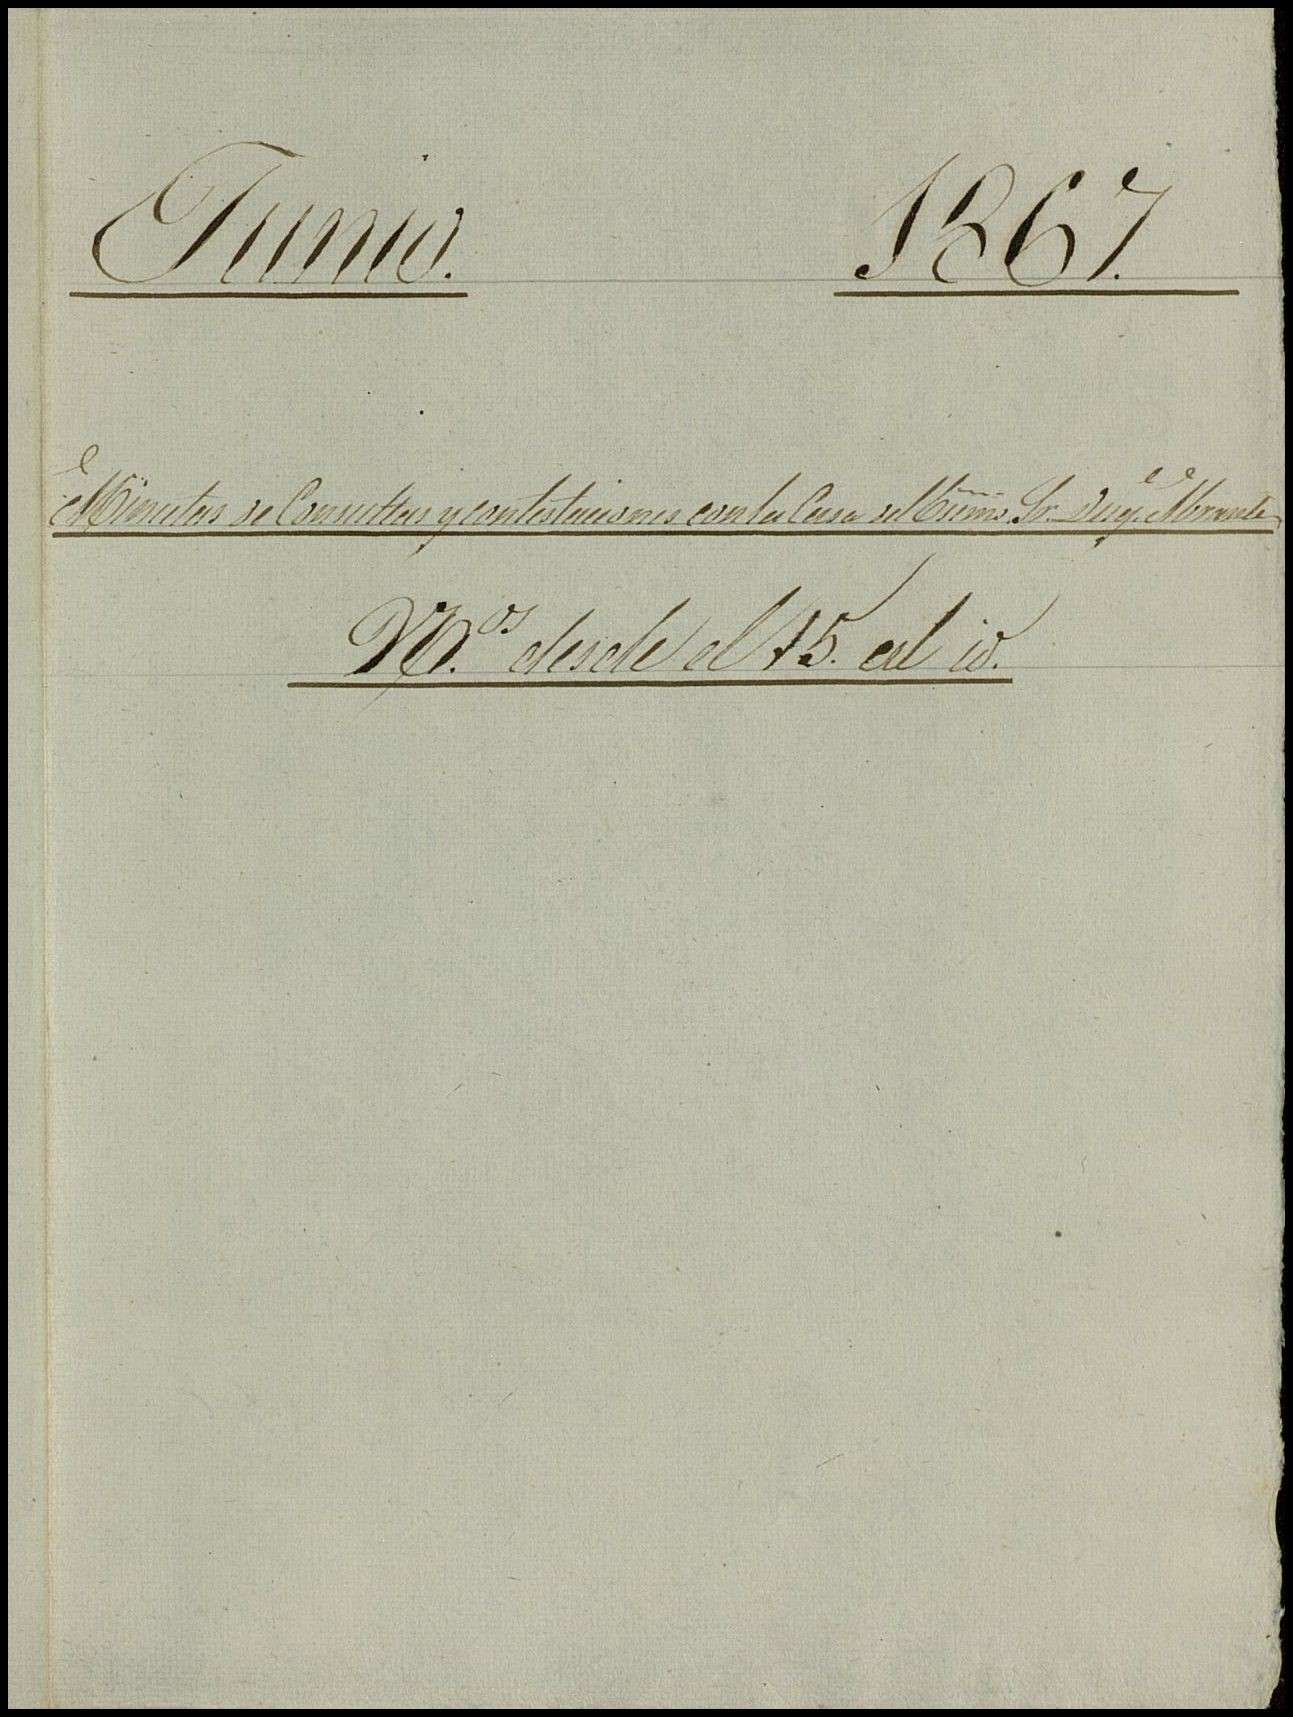 Junio. 1867.
Minutas de Consultas y contestaciones con la Casa del Excmo. Sr. Duq.e de Abrantes
N.os desde el 15. al id.